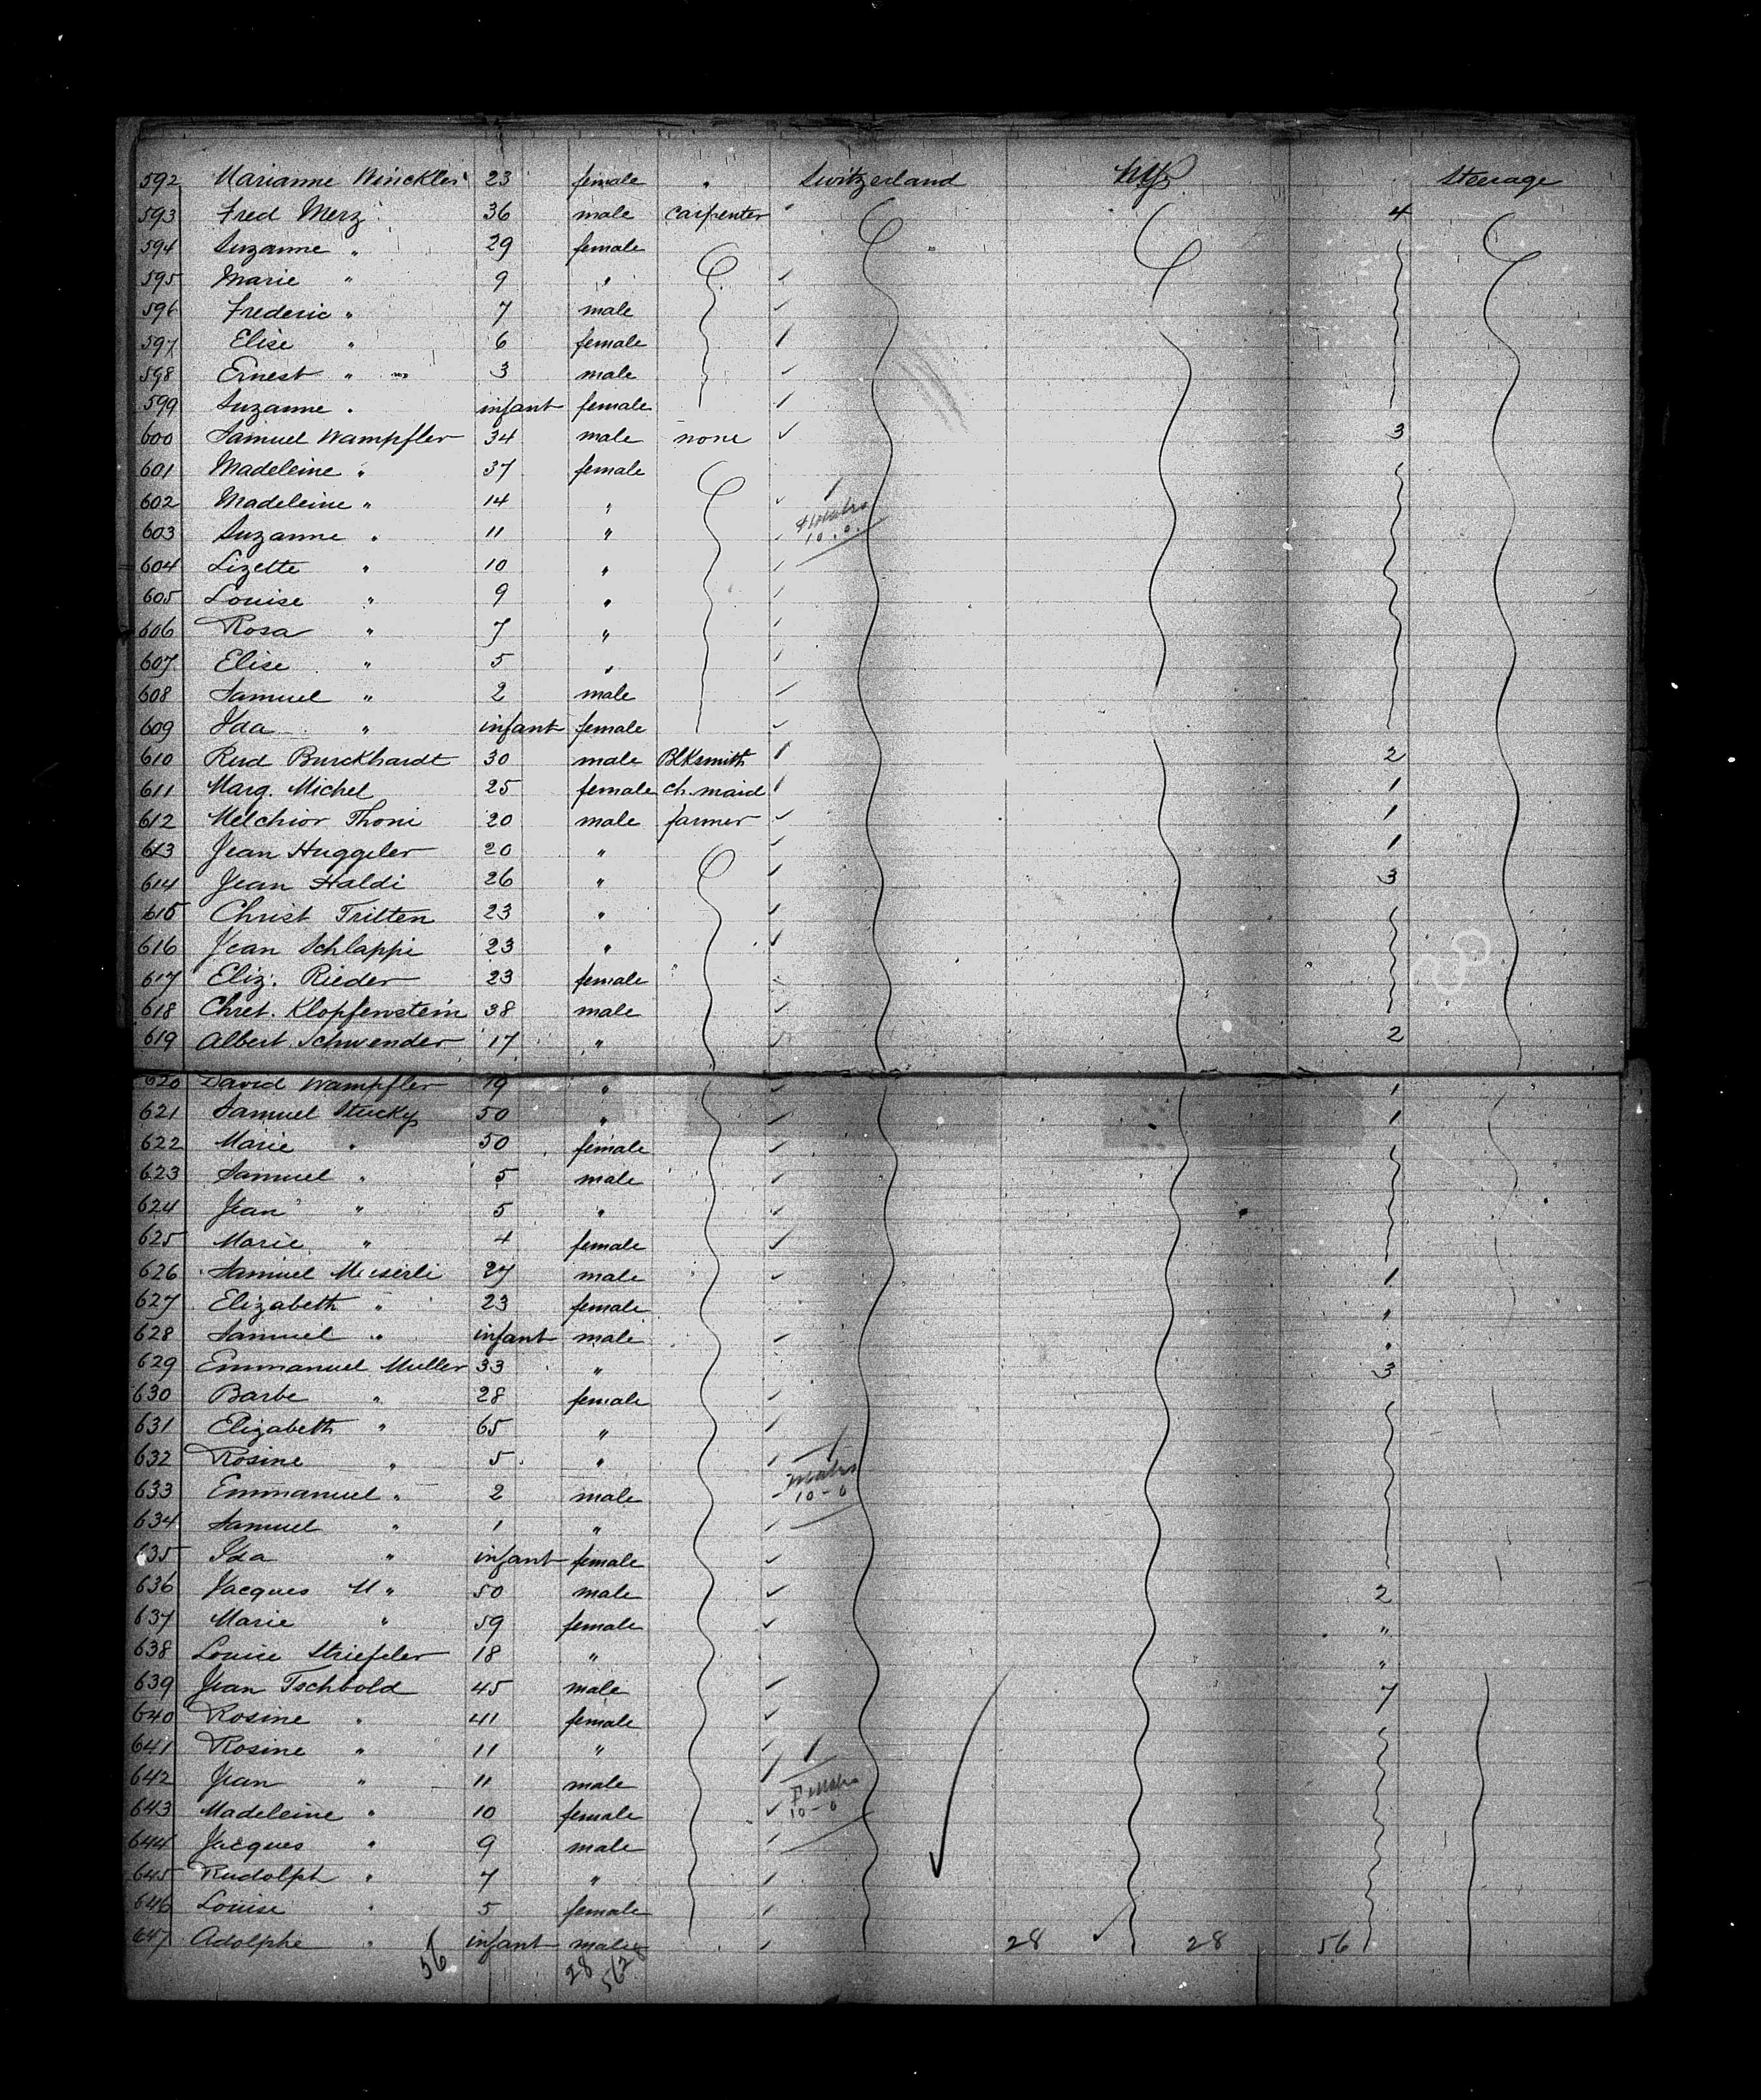 592 Marianne Winckler 23 female " Switzerland Steerage
593 Fred Merz 36 male carpenter 4
594 Suzanne " 29 female
595 Marie " 9 "
596 Frederic " 7 male
597 Elise " 6 female
598 Ernest " 3 male
599 Suzanne " infant female
600 Samuel Wampfler 34 male none 3
601 Madeleine " 37 female
602 Madeleine " 14 "
603 Suzanne " 11 " 10.0.
604 Lizette " 10 "
605 Louise " 9 "
606 Rosa " 7 "
607 Elise " 5 "
608 Samuel " 2 male
609 Ida " infant female
610 Rud Burckhardt 30 male Blksmith 2
611 Marg. Michel 25 female ch. maid 1
612 Melchior Thoni 20 male farmer 1
613 Jean Huggler 20 " 1
614 Jean Haldi 26 " 3
615 Christ Tritten 23 "
616 Jean Schlappi 23 "
617 Eliz. Rieder 23 female
618 Chret. Klopfenstein 38 male
619 Albert Schwender 17 " 2
620 David Wampfler 19 " 1
621 Samuel Stucky 50 " 1
622 Marie " 50 female
623 Samuel " 5 male
624 Jean " 5 "
625 Marie " 4 female
626 Samuel 27 male 1
627 Elizabeth " 23 female "
628 Samuel " infant male "
629 Emmanuel Muller 33 " 3
630 Barbe " 28 female
631 Elizabeth " 65 "
632 Rosine " 5 "
633 Emmanuel " 2 male 10-0
634 Samuel " 1 "
635 Ida " infant female
636 Jacques M " 50 male 2
637 Marie " 59 female "
638 Louise 18 " "
639 Jean Tschbold 45 male 7
640 Rosine " 41 female
641 Rosine " 11 "
642 Jean " 11 male
643 Madeleine " 10 female 10-0
644 Jacques " 9 male
645 Rudolph " 7 "
646 Louise " 5 female
647 Adolphe " infant male 28 28 56
56 28